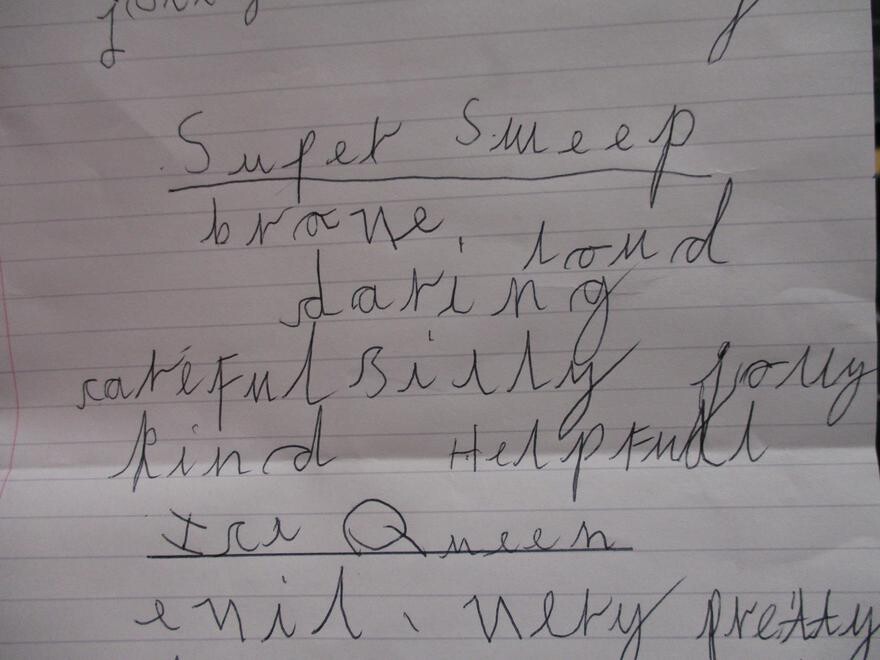 Super Sweep
brave, loud
daring
careful Silly jolly
kind Helpfull
Ice Queen
evil, very pretty